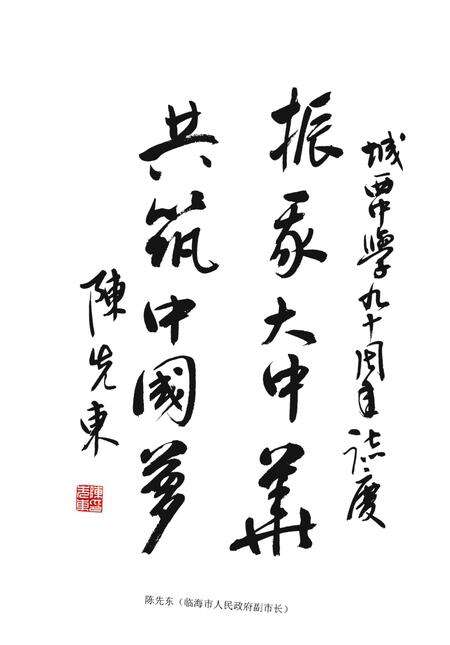 城西中學九十周年誌慶
振我大中華
共筑中國夢
陳先東
陈先东（临海市人民政府副市长）